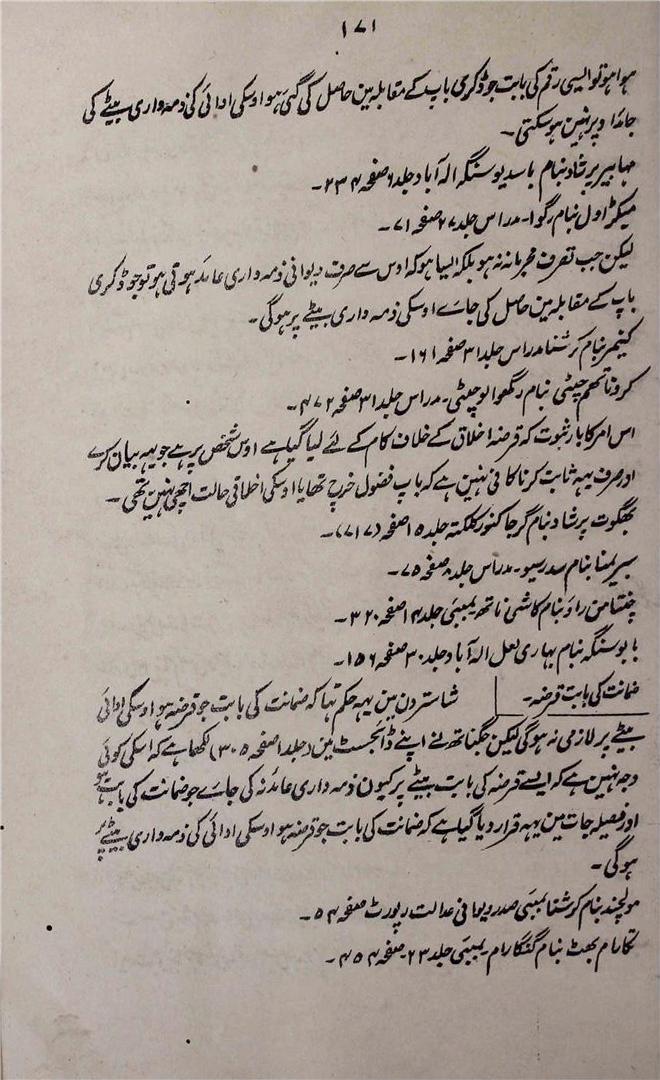 ۱۷۱
ہوا ہو تو ایسی رقم کی بابت جو ڈکری باپ کے مقابلہ مین حاصل کی گئی ہو اوسکی ادائی کی ذمہ واری بیٹے کی
جائداد پر نہین ہو سکتی۔
مہابیر پرشاد بنام باسدیو سنگہ الہ آباد جلد ۶ صفحہ ۲۳۴۔
میکڑاول بنام رگوا۔ مدراس جلد ۲۷ صفحہ ۷۱۔
لیکن جب تصرف مجرمانہ نہ ہو بلکہ ایسا ہو کہ اوس سے صرف دیوانی ذمہ داری عائد ہوتی ہو تو جو ڈکری
باپ کے مقابلہ مین حاصل کی جائے اوسکی ذمہ داری بیٹے پر ہو گی۔
کنیمر بنام کرشنا مدراس جلد ۳۱ صفحہ ۱۶۱۔
کرونا تھم چیٹی بنام رنگھوا لوچیٹی۔ مدراس جلد ۳۱ صفحہ ۴۷۲۔
اس امر کا بار ثبوت کہ قرضہ اخلاق کے خلاف کام کے لئے لیا گیا ہے اوس شخص پر ہے جو یہہ بیان کرے
اور صرف یہہ ثابت کرنا کافی نہین ہے کہ باپ فضول خرچ تھا یا اوسکی اخلاقی حالت اچھی نہین تھی۔
بھگوت پرشاد بنام گرجا کنور کلکتہ جلد ۱۵ صفحہ (۷۱۷)۔
سبریمنا بنام سدرسیو۔ مدراس جلد ۸ صفحہ ۷۵۔
چنتامن راؤ بنام کاشی ناتھ بمبئی جلد ۱۴ صفحہ ۳۲۰۔
بابو سنگہ بنام بہاری لعل الہ آباد جلد ۳۰ صفحہ ۱۵۶۔
ضمانت کی بابت قرضہ۔ شاسترون مین یہہ حکم تہا کہ ضمانت کی بابت جو قرضہ ہو اوسکی ادائی
بیٹے پر لازمی نہ ہوگی لیکن جگناتھ نے اپنے ڈائجسٹ مین (جلد ۱ صفحہ ۳۰۵) لکھا ہے کہ اسکی کوئی
وجہ نہین ہے کہ ایسے قرضہ کی بابت بیٹے پر کیون ذمہ داری عائد نہ کی جاے جو ضمانت کی بابت ہو
اور فیصلہ جات مین یہہ قرار دیا گیا ہے کہ ضمانت کی بابت جو قرضہ ہو اوسکی ادائی کی ذمہ داری بیٹے پر
ہوگی۔
مولچند بنام کرشنا بمبئی صدر دیوانی عدالت رپورٹ صفحہ ۵۴۔
تکارام بھٹ بنام گنگارام۔ بمبئی جلد ۲۳۔ صفحہ ۴۵۴۔